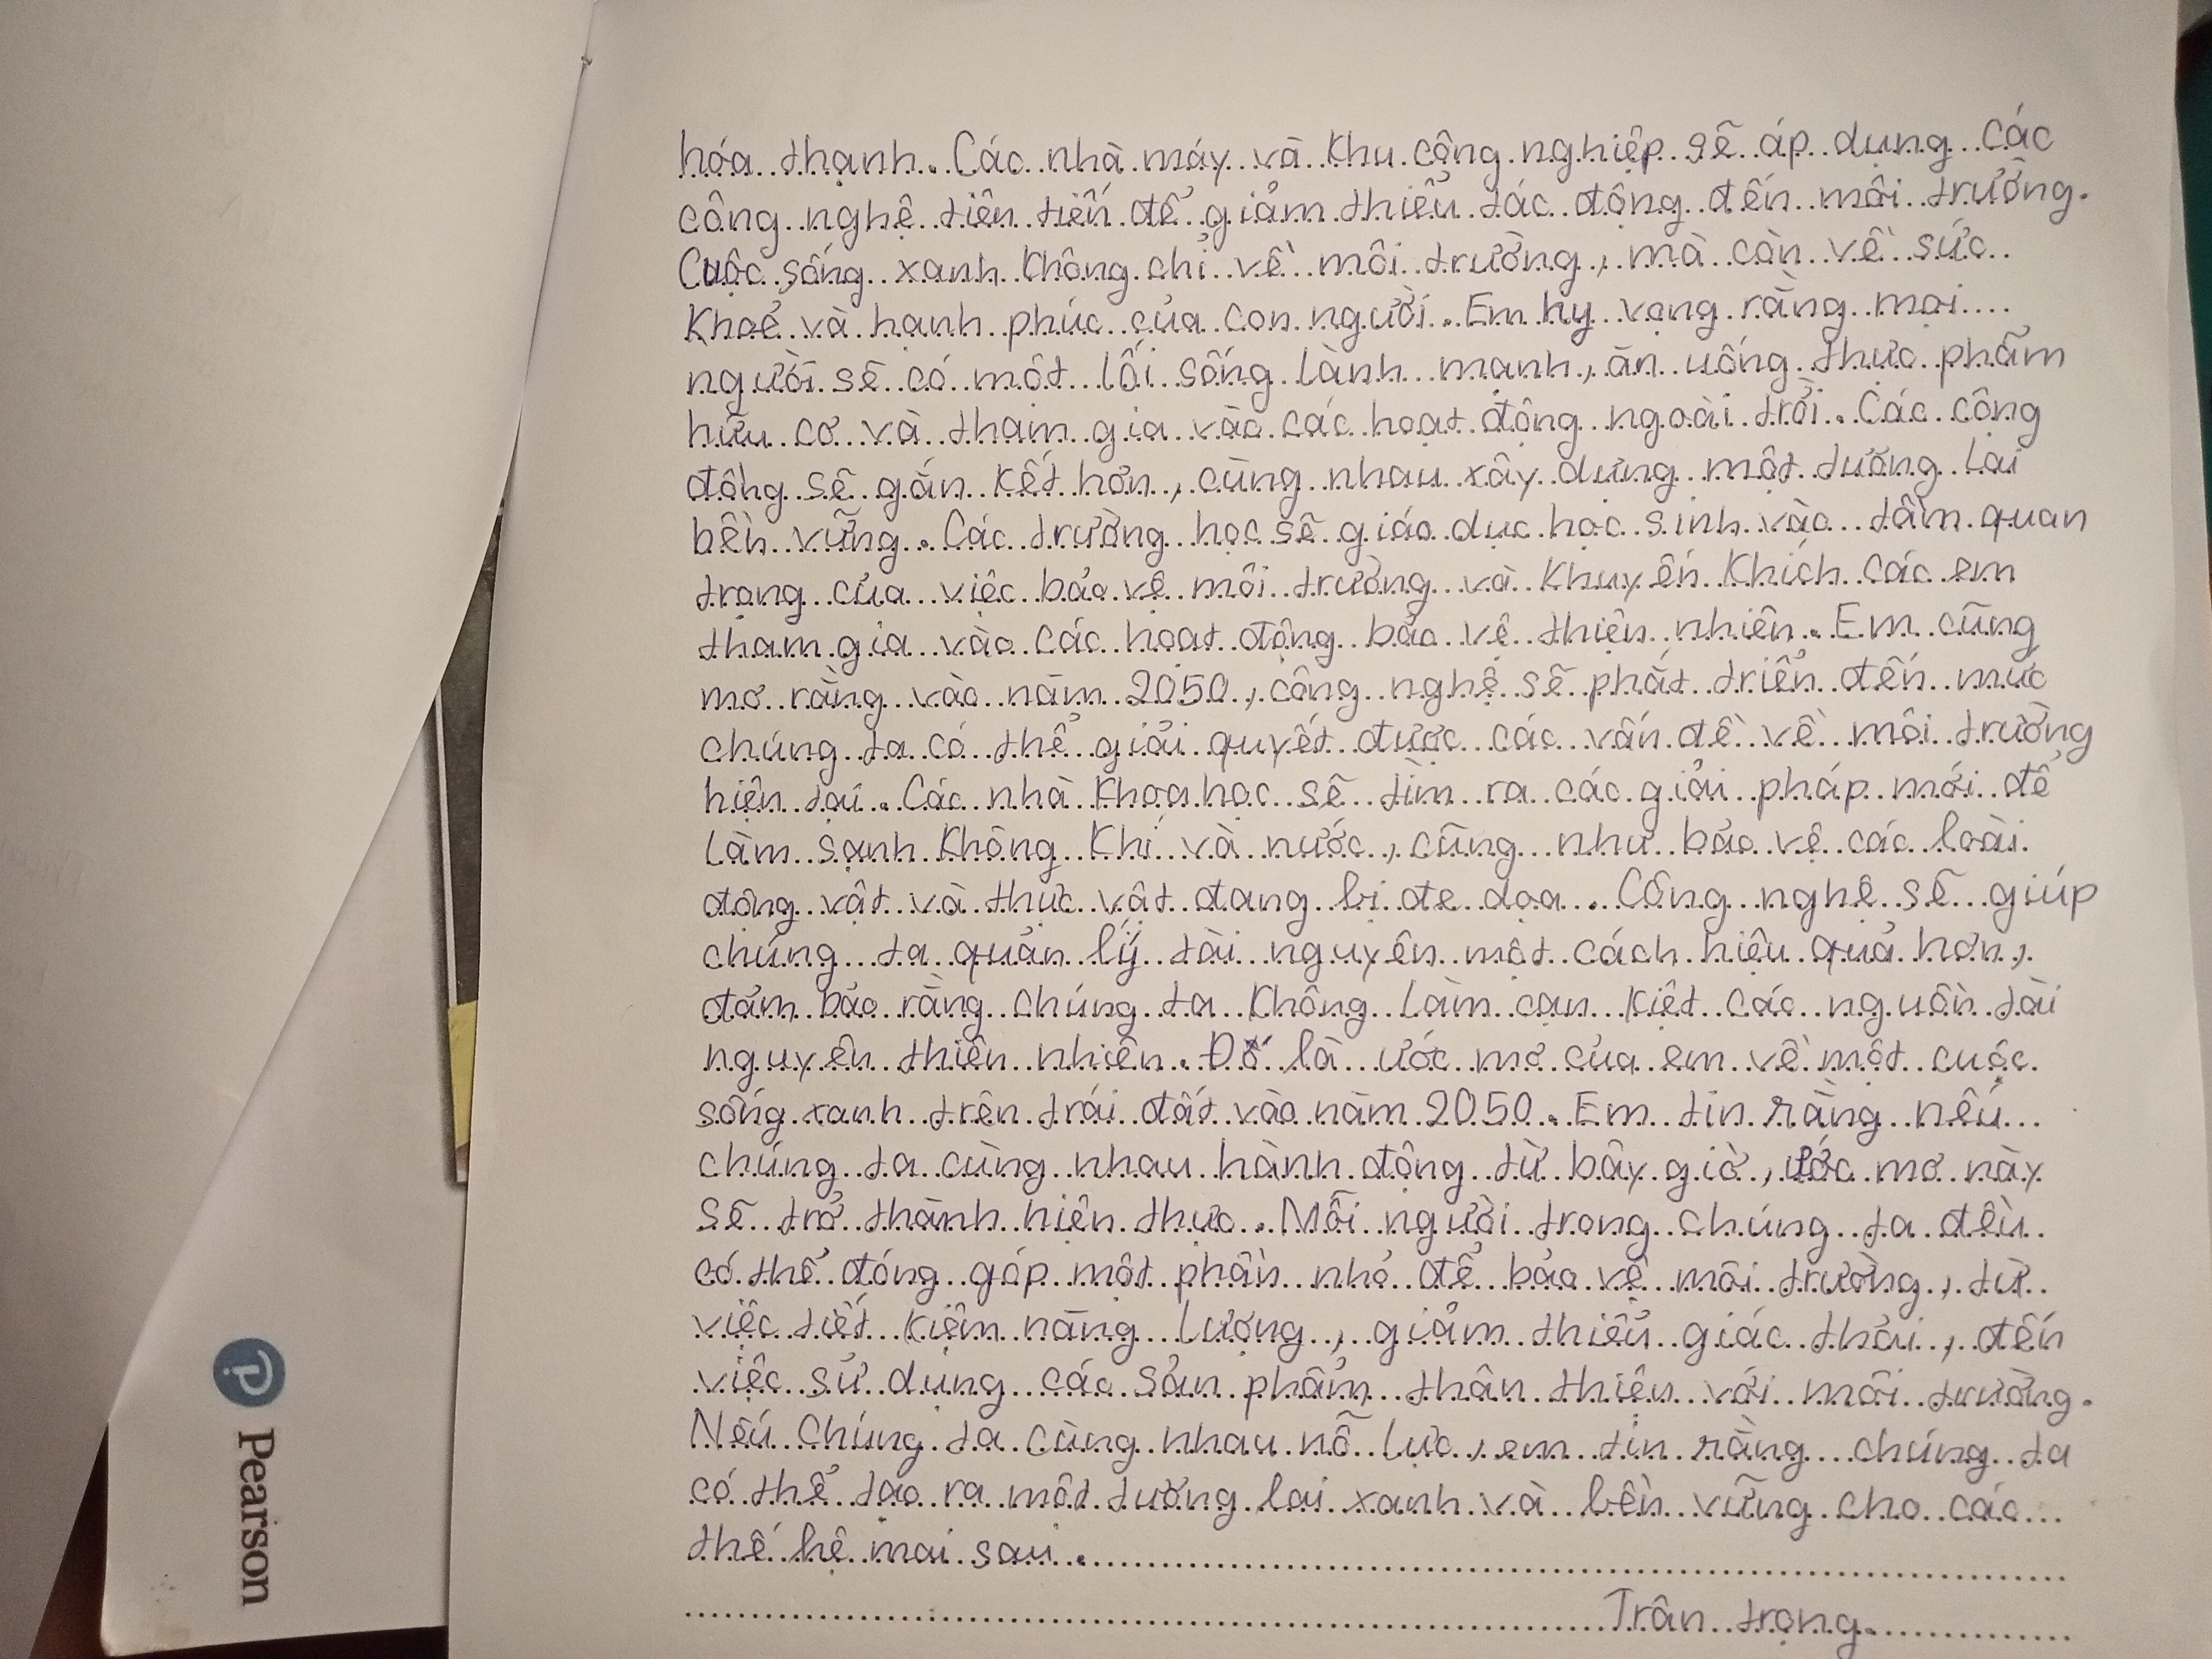 hóa thạnh. Các nhà máy và khu công nghiệp sẽ áp dụng các
công nghệ tiên tiến để giảm thiểu tác động đến môi trường.
Cuộc sống xanh không chỉ về môi trường, mà còn về sức
khoẻ và hạnh phúc của con người. Em hy vọng rằng mọi
người sẽ có một lối sống lành mạnh, ăn uống thực phẩm
hữu cơ và tham gia vào các hoạt động ngoài trời. Các cộng
đồng sẽ gắn kết hơn, cùng nhau xây dựng một tương lai
bền vững. Các trường học sẽ giáo dục học sinh vào tầm quan
trọng của việc bảo vệ môi trường và khuyến khích các em
tham gia vào các hoạt động bảo vệ thiên nhiên. Em cũng
mơ rằng vào năm 2050, công nghệ sẽ phát triển đến mức
chúng ta có thể giải quyết được các vấn đề về môi trường
hiện tại. Các nhà khoa học sẽ tìm ra các giải pháp mới để
làm sạnh không khí và nước, cũng như bảo vệ các loài
động vật và thực vật đang bị đe dọa. Công nghệ sẽ giúp
chúng ta quản lý tài nguyên một cách hiệu quả hơn,
đảm bảo rằng chúng ta không làm cạn kiệt các nguồn tài
nguyên thiên nhiên. Đó là ước mơ của em về một cuộc
sống xanh trên trái đất vào năm 2050. Em tin rằng nếu
chúng ta cùng nhau hành động từ bây giờ, ước mơ này
sẽ trở thành hiện thực. Mỗi người trong chúng ta đều
có thể đóng góp một phần nhỏ để bảo vệ môi trường, từ
việc tiết kiệm năng lượng, giảm thiểu giác thải, đến
việc sử dụng các sản phẩm thân thiện với môi trường.
Nếu chúng ta cùng nhau nỗ lực, em tin rằng chúng ta
có thể tạo ra một tương lai xanh và bền vững cho các
thế hệ mai sau.
Trân trọng.
Pearson